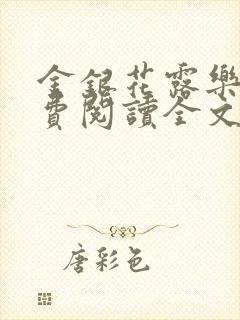 金銀花露樂
費閱讀全文
唐彩色